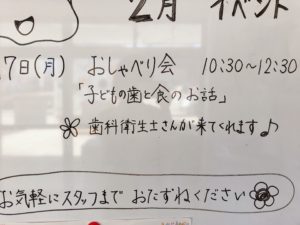 2月 イベント
7日(月) おしゃべり会 10:30~12:30
「子どもの歯と食のお話」
歯科衛生士さんが来てくれます♪
お気軽にスタッフまで おたずねください